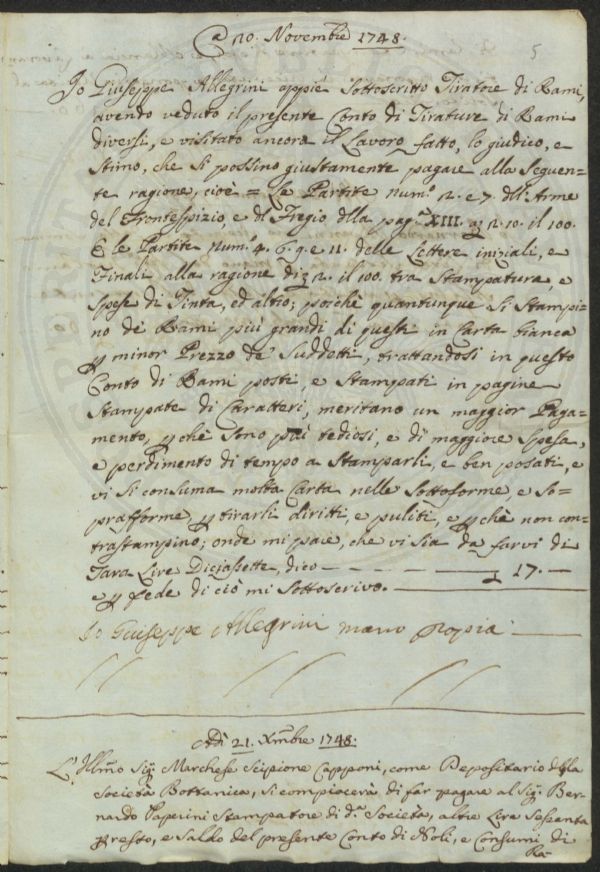 A 20. Novembre 1748.
5
Io Giuseppe Allegrini appiè Sottoscritto Tiratore di Rami,
avendo veduto il presente Conto di Tirature di Rami
diversi, e visitato ancora il Lavoro fatto, lo giudico, e
Stimo, che si possino giustamente pagare alla Seguen=
te ragione, cioè = Le Partite num.° 2. e 7. dll' Arme
del Frontespizio, e dl Fregio dlla pag.ª XIII. a 2. 10. il 100.
E le Partite num.° 4. 6. 9. e 11. delle Lettere iniziali, e
Finali alla ragione di 2. il 100. tra Stampatura, e
Spese di Tinta, ed altro; poichè quantunque Si Stampi=
no de Rami più grandi di questi in Carta bianca
p minor Prezzo de Suddetti, trattandosi in questo
Conto di Rami posti, e Stampati in pagine
Stampate di Caratteri, meritano un maggior Paga=
mento, p chè sono più tediosi, e di maggiore Spesa,
e perdimento di tempo a Stamparli, e ben posati, e
vi si consuma molta Carta nelle Sottoforme, e So=
prafforme, p tirarli diritti, e puliti, e p chè non con=
trastampino; onde mi pare, che vi sia da farvi di
Tara Lire Diciassette, dico — 17. —
e p fede di ciò mi Sottoscrivo.
Io Giuseppe Allegrini mano propia
Adì 21. Xmbre 1748.
L'Illmo Sig. Marchese Scipione Capponi, come Depositario dlla
Società Bottanica, si compiacerà di far pagare al Sig. Ber=
nardo Paperini Stampatore di d.ª Società, altre Lire Sessanta
p resto, e Saldo del presente Conto di Noli, e Consumi di
Ra=